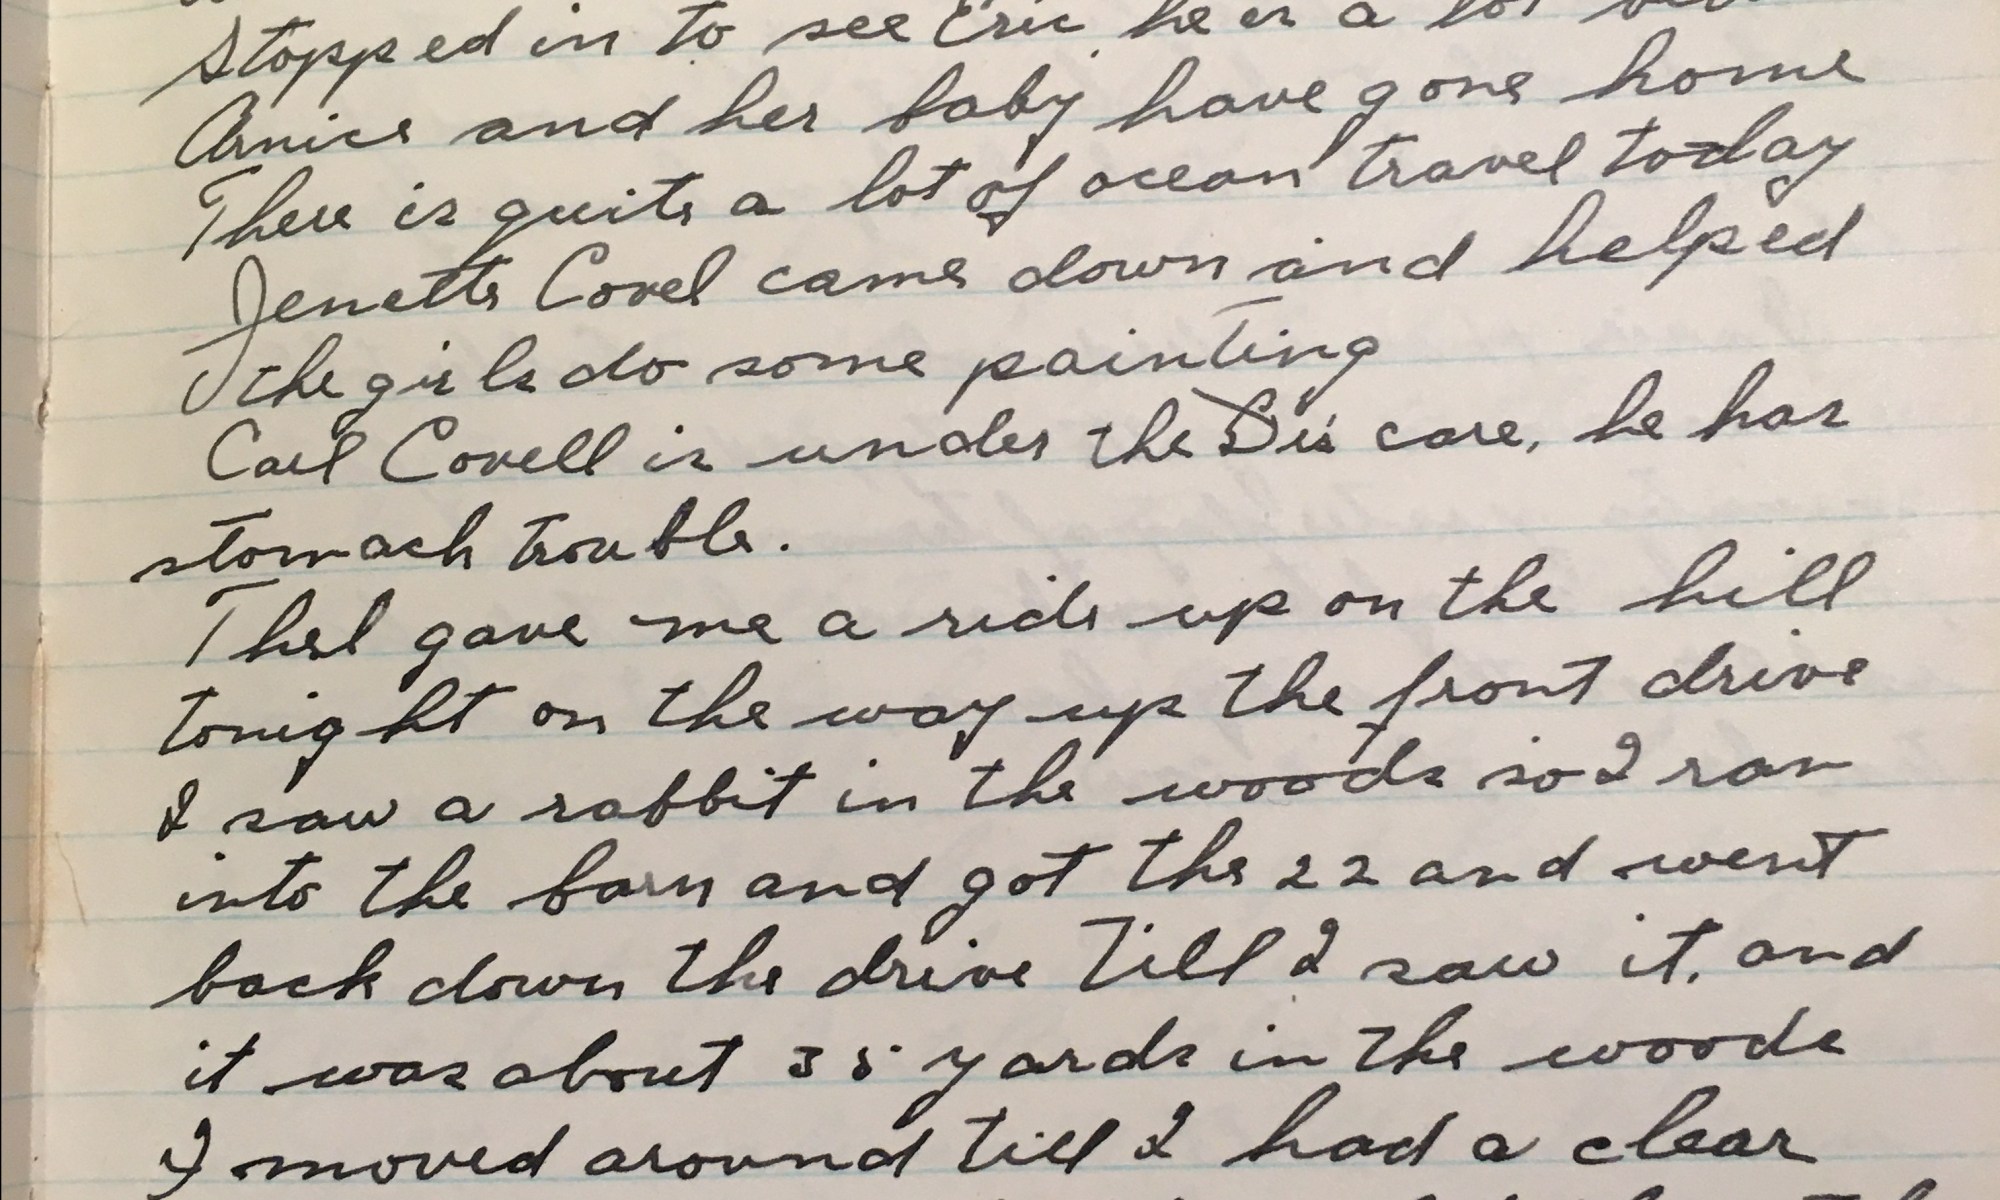 Stopped in to see Eric he is a lot
Annice and her baby have gone home
There is quite a lot of ocean travel today
Jenette Covel came down and helped
the girls do some painting
Carl Covell is under the Drs care, he has
stomach trouble.
Thel gave me a ride up on the hill
tonight on the way up the front drive
I saw a rabbit in the woods so I ran
into the barn and got the 22 and went
back down the drive till I saw it, and
it was about 35 yards in the woods
I moved around till I had a clear